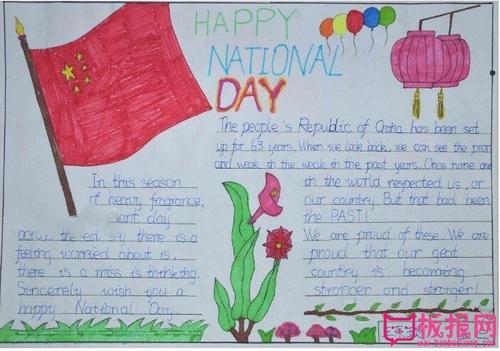 HAPPY
NATIONAL
DAY
The people's Republic of China has been set
up for 63 years. When we look back, we can see the poor
and weak in the weak in the past years. Once none
in the world respected us, or
our country. But that had been
the PAST!
We are proud of these. We are
proud that our geat
country is becoming
stronger and stronger!
In this season
of heavy fragrance,
day
there is a
feeling worried about is,
there is a miss is thinking.
Sincerely wish you a
happy National Day.
板报网